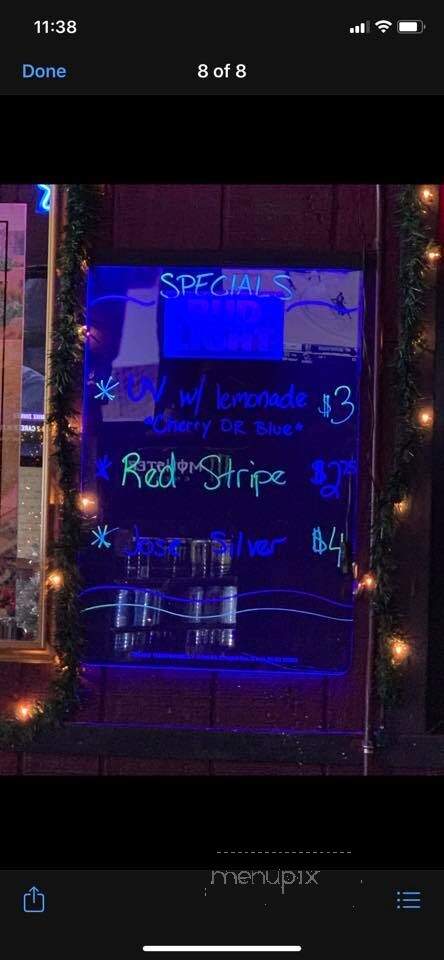 11:38
Done
8 of 8
SPECIALS
BUD
LIGHT
* UV w/ lemonade $3
*Cherry OR Blue*
* Red Stripe $2.75
* Jose Silver $4
menupix